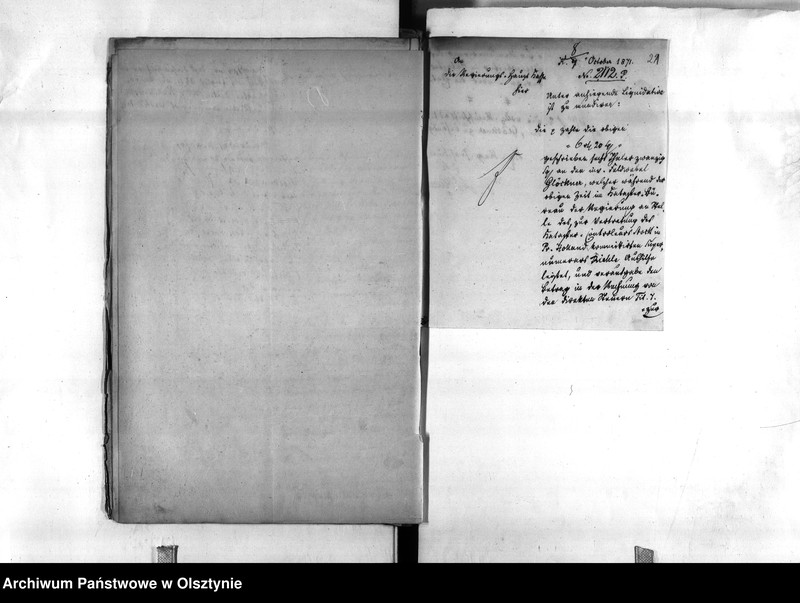 An
die Regierungs-Haupt Kasse
hier
8/9 October 1871.
29
No. 2112. P.
Unter anliegende Liquidation
ist zu mundiren:
Die p zahle die obigen
" 6 rl, 20 sg "
geschrieben sechs Thaler zwanzig
sg an den inv. Feldwebel
Glöckner, welcher während der
obigen Zeit im Kataster-Bü-
reau der Regierung an Stel-
le des, zur Vertretung des
Kataster-Controleurs in
Pr. Holland kommittirten Super-
numerars Aushilfe
leistet, und verausgabe den
Betrag in der Rechnung von
den direkten Steuern Tit. 7.
Archiwum Państwowe w Olsztynie